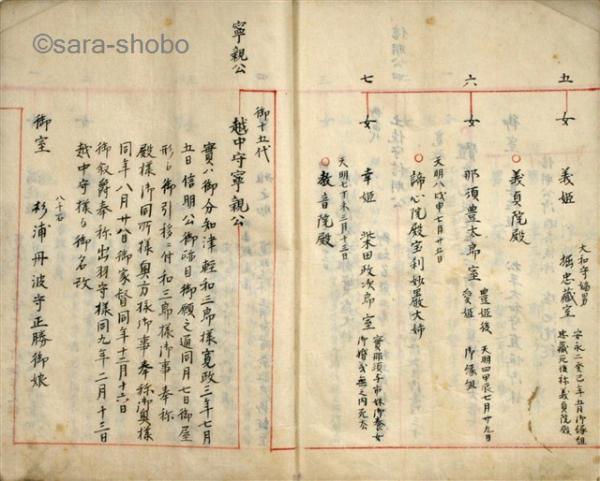 ©sara-shobo
五
女
義姫
大和守嫡男
堀忠藏室
安永二癸巳年五月御縁組
忠藏死後称義貞院殿
義貞院殿
六
女
那須豊太郎室
豊姫後
愛姫
天明四甲辰七月廿九日
御縁組
天明八戊申七月廿五日
諦心院殿室利妙嚴大姉
七
女
幸姫
柴田政次郎室
天明七丁未三月十三日
教音院殿
寧親公
御十五代
越中守寧親公
實ハ御分知津輕和三郎様寛政三年七月
五日信明公御跡目御願之通同月七日御屋
形江御引移ニ付和三郎様御事奉称
殿様御同所様奥方様御事奉称御奥様
同年八月廿八日御家督同年十二月十六日
御叙爵奉称出羽守様同九年二月十三日
越中守様与御名改
八千石
御室
杉浦丹波守正勝御娘